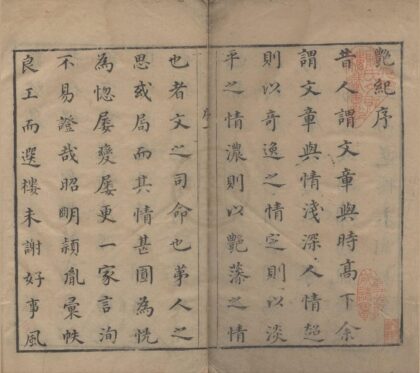 艷紀序
昔人謂文章與時高下余
謂文章與情淺深人情超
則以奇逸之情定則以淡
平之情濃則以艷藻之情
序一
也者文之司命也第人之
思或局而其情甚圓為恍
為惚屢變屢更一家言洵
不易證哉昭明穎胤彙帙
良工而選樓未謝好事風